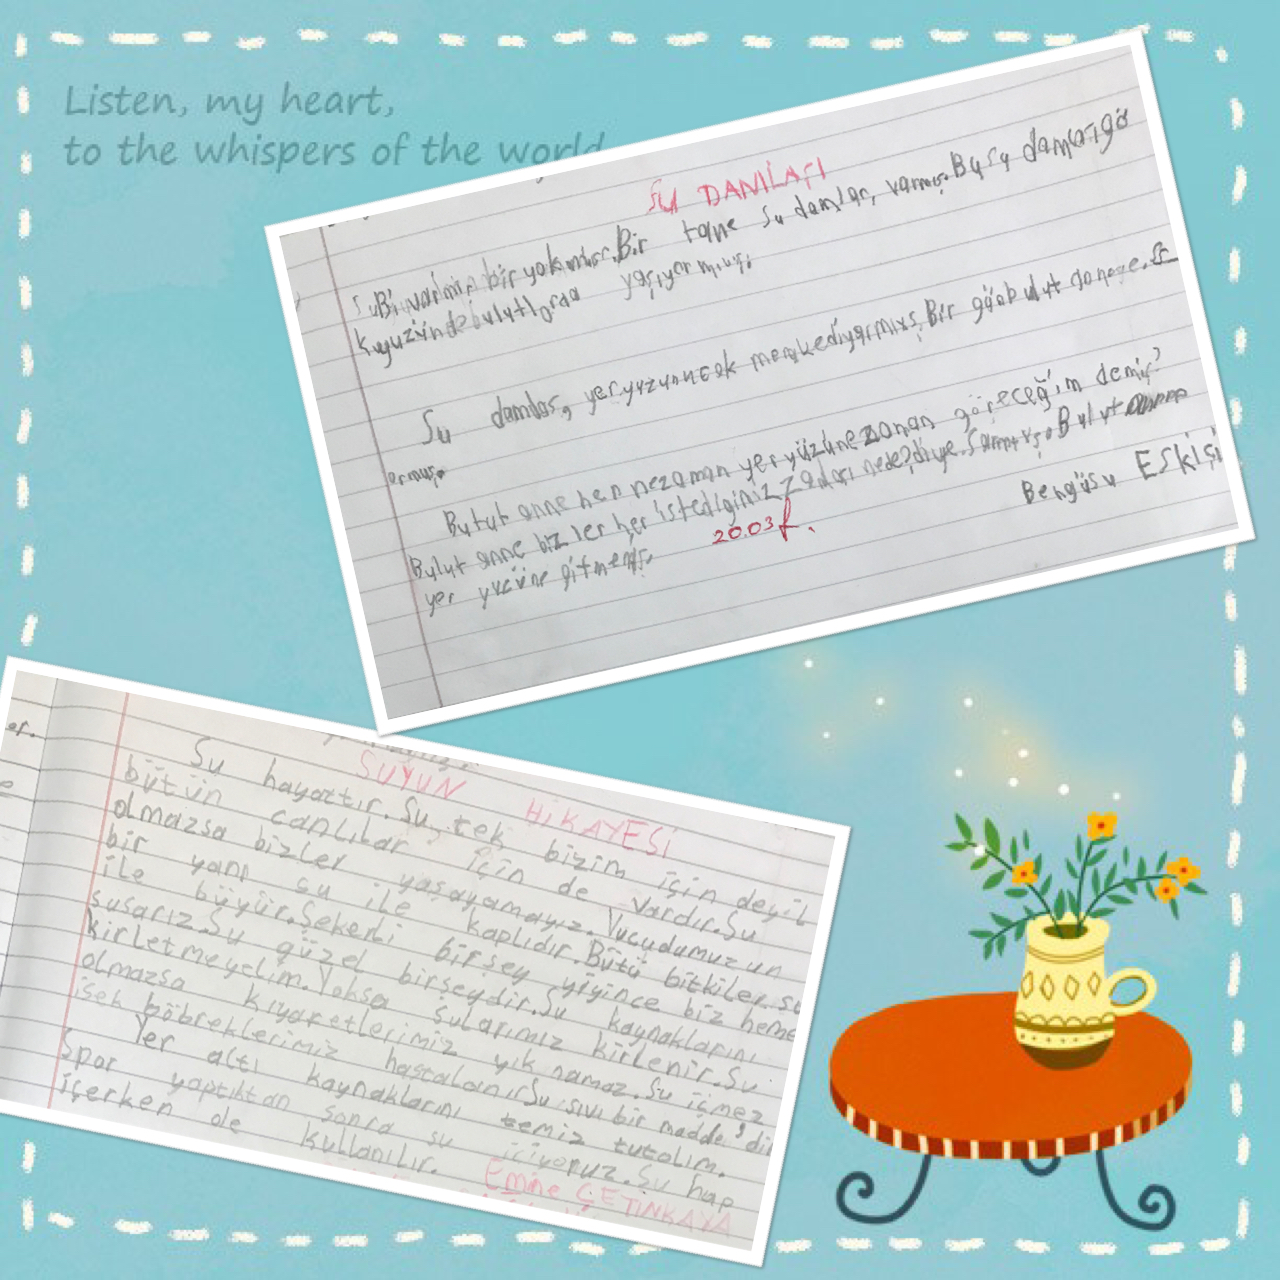 Listen, my heart,
to the whispers of the world
SU DAMLASI
Bir varmış bir yokmuş. Bir tane su damlası varmış. Bu su damlası gö
kyuzünde bulutlarda yaşıyormuş.
Su damlası, yeryüzünü çok merak ediyormuş. Bir gün bulut
ormuş.
Bulut anne ben ne zaman yer yüzüne zaman göreceğim demiş?
Bulut anne bizler her istediğiniz diye. Bulut anne
yer yüzüne gitmemiş.
20.03
Bengüsu Eskişi
er.
e
SUYUN HİKAYESİ
Su hayattır. Su, tek bizim için değil
bütün canlılar için de vardır. Su
olmazsa bizler yaşayamayız. Vucudumuzun
bir yanı su ile kaplıdır. Bütü bitkiler su
ile büyür. Şekerli birşey yiyince biz heme
susarız. Su güzel birşeydir. Su kaynaklarını
kirletmeyelim. Yoksa sularımız kirlenir. Su
olmazsa kıyaretlerimiz yık namaz. Su içmez
isek böbreklerimiz hastalanır. Su sıvı bir madde'dir
Yer altı kaynaklarını temiz tutalım.
Spor yaptıktan sonra su içiyoruz. Su hap
içerken de kullanılır.
Emine ÇETİNKAYA